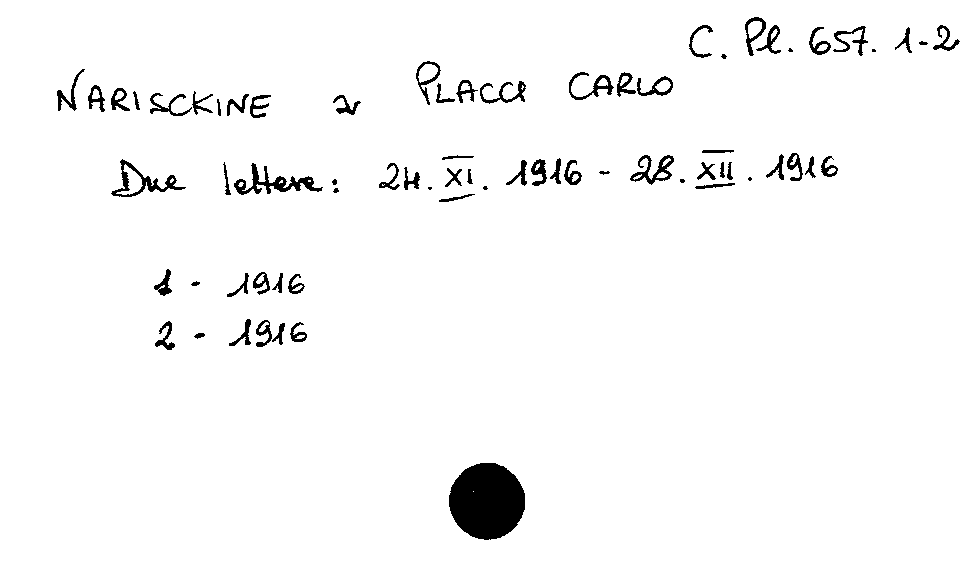 C. Pl. 657. 1-2
NARISCKINE a PLACCI CARLO
Due lettere: 24. XI. 1916 - 28. XII. 1916
1 - 1916
2 - 1916